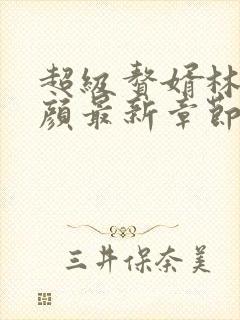 超级赘婿林
颜最新章节
三井保奈美